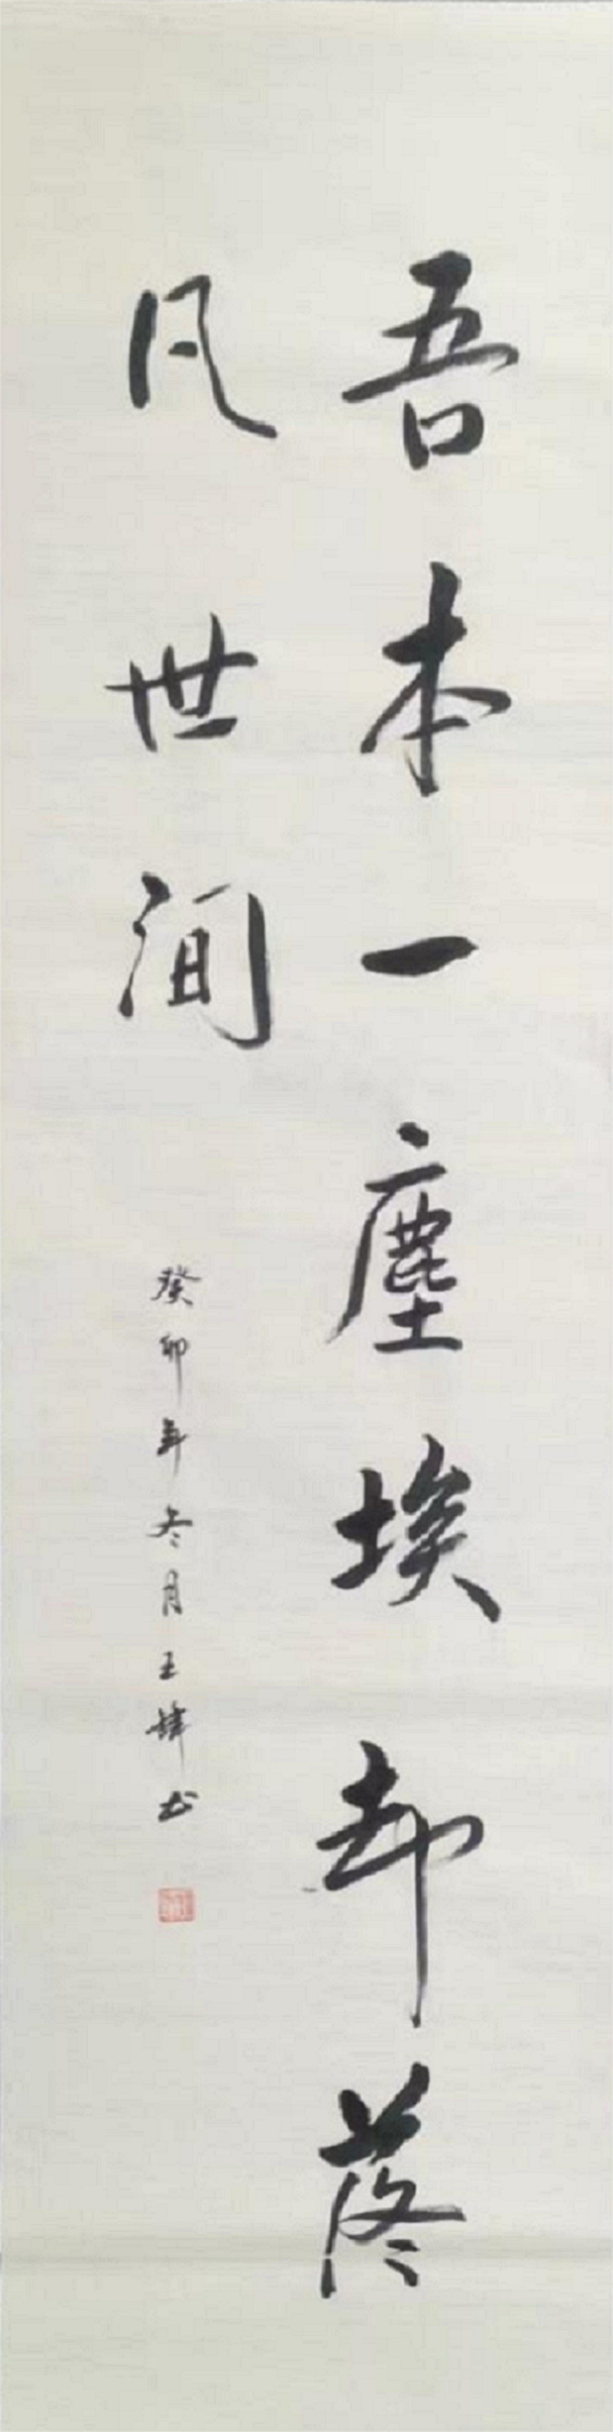 吾本一塵埃却落
风世间
癸卯年冬月王
书